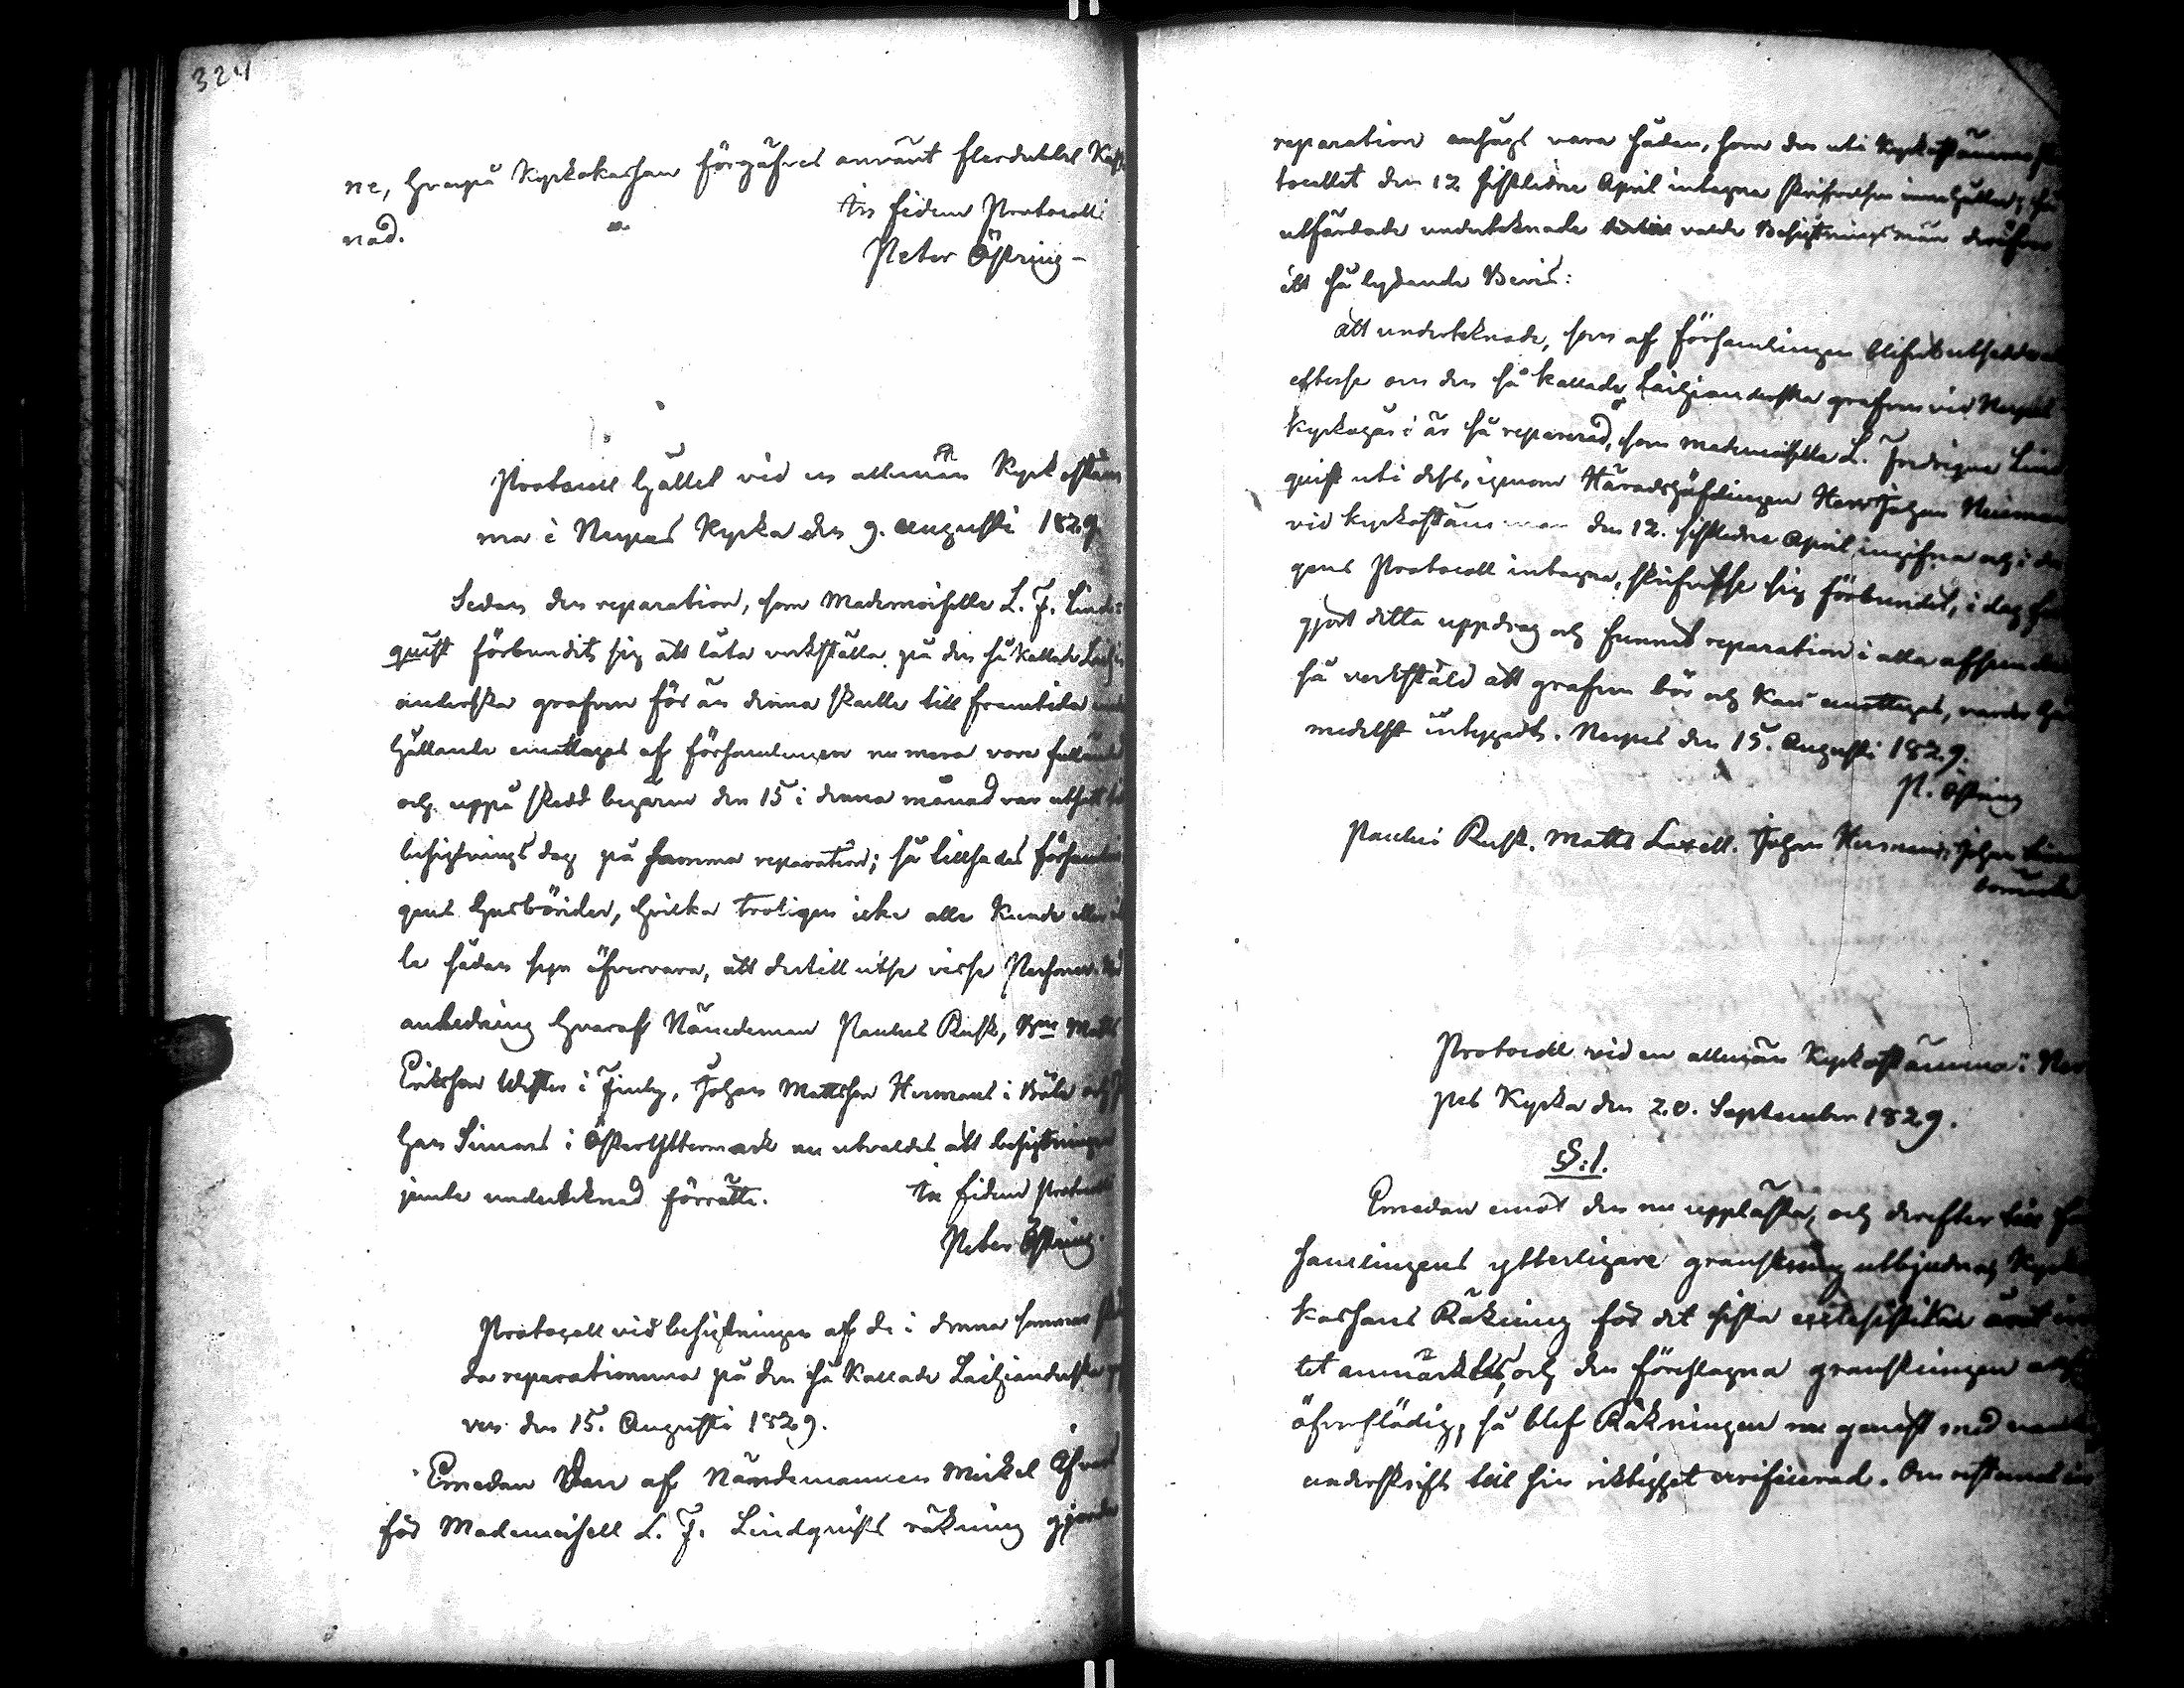 324
ne, hvarpå Kyrkokassan förgäfves använt flerdubbel Kost
nad.
In fidem Protocolli
Peter Östring
Protocoll hållet vid en allmän Kyrkostäm
ma i Nerpes Kyrka den 9. Augusti 1829
Sedan den reparation, som Mademoiselle L. F. Lind-
quist förbundit sig att låta verkställa på den så kallade
anderska grafven för än denna skulle till framtida
hållande emottages af Församlingen nu mera vore fulländad
och uppå skedd begäran den 15 i denna månad var utsatt till
besigtnings dag på samma reparation; så tillsades Församlin
gens Husbönder, hvilka troligen icke alle kunde eller
le sådan syn öfvervara, att dertill utse visse Personer.
anledning hvaraf Nämdeman Paulus Rusk, Bn Matts
Eriksson i Finby, Johan Mattsson Hermans i Böle och
han Simons i ÖsterYttermark nu utvaldes att besigtningen
jemte undertecknad förrätta.
In fidem Protocolli
Peter Östring.
Protocoll vid besigtningen af de i denna sommar
da reparationerna på den så kallade
ven den 15. Augusti 1829.
Emedan den af Nämdemannen Mickel
för Mademoisell L. F. Lindquists räkning gjorde
reparation ansågs vara sådan, som den uti Kyrkostämmo Pro
tocollet den 12 sistledne April intagna skrifvelsen innehåller, så
utfärdade undertecknade valde Besigtningsmän deröfver
ett så lydande Bevis:
Att undertecknade, som af Församlingen blifvit utsedde att
efterse om den så kallade grafven vid Nerpes
Kyrkogård är så reparerad, som Mademoiselle L. Fredrique Lind
quist uti dess, igenom Häradshöfdingen Herr Johan
vid Kyrkostämman den 12. sistledne April ingifna och i da
gens Protocoll intagna, skrifvelse sig förbundit, i dag
gjort detta uppdrag och funnit reparation i alla afseenden
så verkstäld att grafven bör och kan emottagas, varder här
medelst intygadt. Nerpes den 15. Augusti 1829.
P. Östring
Paulus Rusk. Matts Laxell. Johan Hermans. Johan Simons
bomärke
Protocoll vid en allmän Kyrkostämma i Ner
pes Kyrka den 20. September 1829.
§:1.
Emedan emot den nu upplästa, och derefter till För
samlingens ytterligare granskning utbjudna, Kyrko
kassans Räkning för det sista ecclesiastika året in
tet anmärktes, och den föreslagna granskningen ansågs
öfverflödig, så blef Räkningen nu genast med
underskrift till sin riktighet verificerad. Om